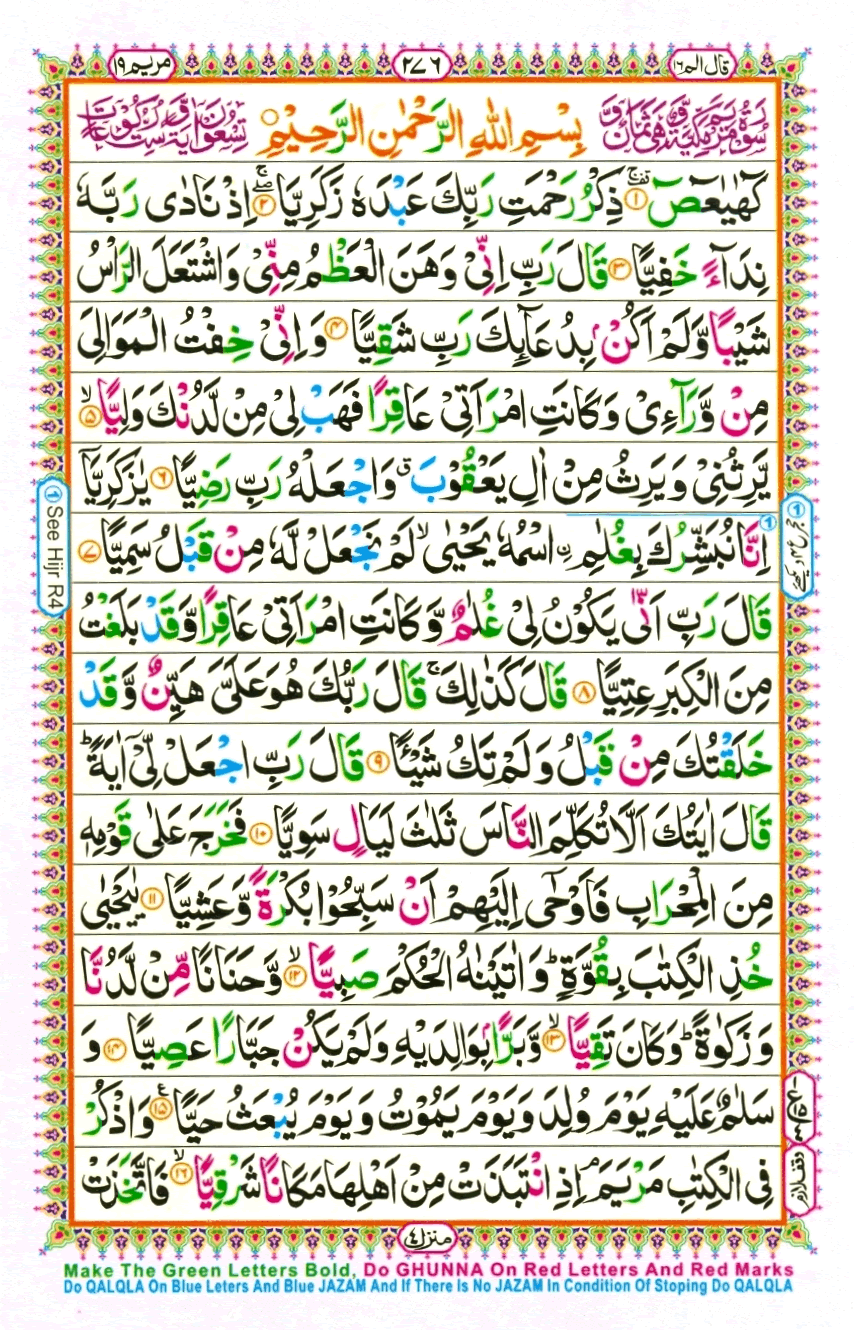 مريم ١٩
٢٧٦
قال الم ١٦
سُوْرَةُ مَرْيَمَ مَكِّيَّةٌ وَّهِىَ ثَمَانٌ وَّ
بِسْمِ اللهِ الرَّحْمٰنِ الرَّحِيْمِ
تِسْعُوْنَ اٰيَةً وَّسِتُّ رُكُوْعَاتٍ
كٓهٰيٰعٓصٓ ۚ﴿١﴾ ذِكْرُ رَحْمَتِ رَبِّكَ عَبْدَهٗ زَكَرِيَّا ۖۚ﴿٢﴾ اِذْ نَادٰى رَبَّهٗ
نِدَآءً خَفِيًّا ﴿٣﴾ قَالَ رَبِّ اِنِّىْ وَهَنَ الْعَظْمُ مِنِّىْ وَاشْتَعَلَ الرَّاْسُ
شَيْبًا وَّلَمْ اَكُنْۢ بِدُعَآئِكَ رَبِّ شَقِيًّا ﴿٤﴾ وَاِنِّىْ خِفْتُ الْمَوَالِىَ
مِنْ وَّرَآءِىْ وَكَانَتِ امْرَاَتِىْ عَاقِرًا فَهَبْ لِىْ مِنْ لَّدُنْكَ وَلِيًّا ۙ﴿٥﴾
يَّرِثُنِىْ وَيَرِثُ مِنْ اٰلِ يَعْقُوْبَ ۗ وَاجْعَلْهُ رَبِّ رَضِيًّا ﴿٦﴾ يٰزَكَرِيَّآ
اِنَّا نُبَشِّرُكَ بِغُلٰمِ ۨاسْمُهٗ يَحْيٰى ۙ لَمْ نَجْعَلْ لَّهٗ مِنْ قَبْلُ سَمِيًّا ﴿٧﴾
قَالَ رَبِّ اَنّٰى يَكُوْنُ لِىْ غُلٰمٌ وَّكَانَتِ امْرَاَتِىْ عَاقِرًا وَّقَدْ بَلَغْتُ
مِنَ الْكِبَرِ عِتِيًّا ﴿٨﴾ قَالَ كَذٰلِكَ ۚ قَالَ رَبُّكَ هُوَ عَلَىَّ هَيِّنٌ وَّقَدْ
خَلَقْتُكَ مِنْ قَبْلُ وَلَمْ تَكُ شَيْـًٔا ﴿٩﴾ قَالَ رَبِّ اجْعَلْ لِّىْٓ اٰيَةً ؕ
قَالَ اٰيَتُكَ اَلَّا تُكَلِّمَ النَّاسَ ثَلٰثَ لَيَالٍ سَوِيًّا ﴿١٠﴾ فَخَرَجَ عَلٰى قَوْمِهٖ
مِنَ الْمِحْرَابِ فَاَوْحٰٓى اِلَيْهِمْ اَنْ سَبِّحُوْا بُكْرَةً وَّعَشِيًّا ﴿١١﴾ يٰيَحْيٰى
خُذِ الْكِتٰبَ بِقُوَّةٍ ؕ وَاٰتَيْنٰهُ الْحُكْمَ صَبِيًّا ۙ﴿١٢﴾ وَّحَنَانًا مِّنْ لَّدُنَّا
وَزَكٰوةً ؕ وَكَانَ تَقِيًّا ۙ﴿١٣﴾ وَّبَرًّۢا بِوَالِدَيْهِ وَلَمْ يَكُنْ جَبَّارًا عَصِيًّا ﴿١٤﴾ وَ
سَلٰمٌ عَلَيْهِ يَوْمَ وُلِدَ وَيَوْمَ يَمُوْتُ وَيَوْمَ يُبْعَثُ حَيًّا ﴿١٥﴾ وَاذْكُرْ
فِى الْكِتٰبِ مَرْيَمَ ۘ اِذِ انْتَبَذَتْ مِنْ اَهْلِهَا مَكَانًا شَرْقِيًّا ۙ﴿١٦﴾ فَاتَّخَذَتْ
① See Hijr R4
وقف لازم
منزل ٤
Make The Green Letters Bold, Do GHUNNA On Red Letters And Red Marks
Do QALQLA On Blue Leters And Blue JAZAM And If There Is No JAZAM In Condition Of Stoping Do QALQLA